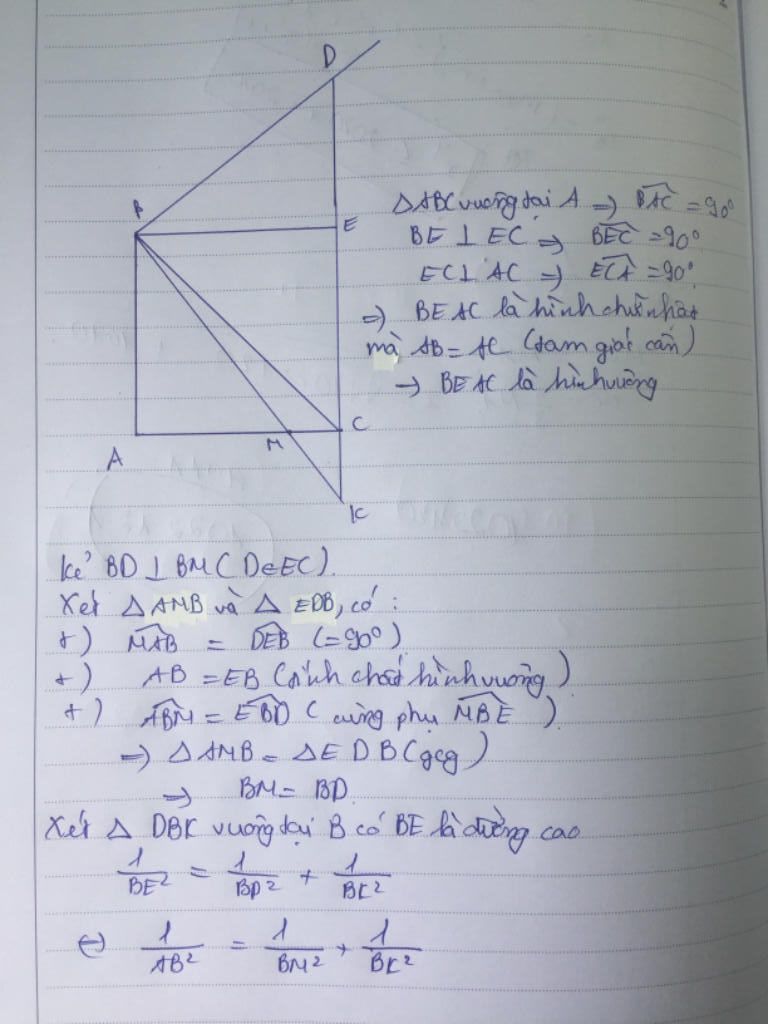 D
B
E
A
M
C
K
△ABC vuông tại A ⇒ BAC = 90°
BE ⊥ EC ⇒ BEC = 90°
EC ⊥ AC ⇒ ECA = 90°
⇒ BEAC là hình chữ nhật
mà AB = AC (tam giác cân)
→ BEAC là hình vuông
kẻ BD ⊥ BM (D ∈ EC).
Xét △ AMB và △ EDB, có :
+) MAB = DEB (= 90°)
+) AB = EB (tính chất hình vuông)
+) ABM = EBD ( cùng phụ MBE )
⇒ △ AMB = △ E D B (gcg)
⇒ BM = BD.
Xét △ DBK vuông tại B có BE là đường cao
1/BE² = 1/BD² + 1/BK²
⇔ 1/AB² = 1/BM² + 1/BK²